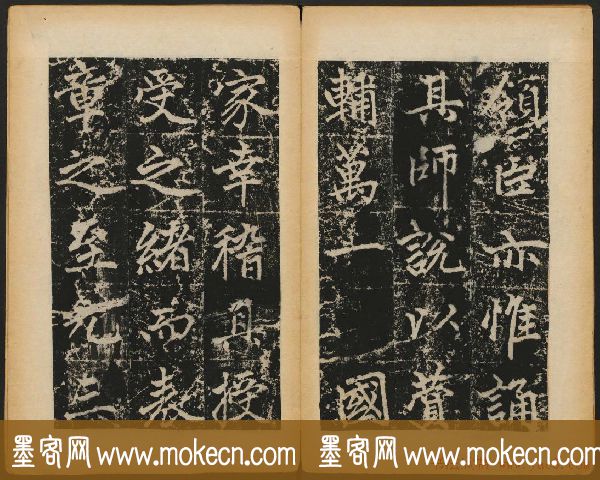 領臣亦惟誦
其師說以贊
輔萬一國
家幸稽其授
受之緒而
章之至元三
墨客网 www.mokecn.com 墨客网 www.mokecn.com